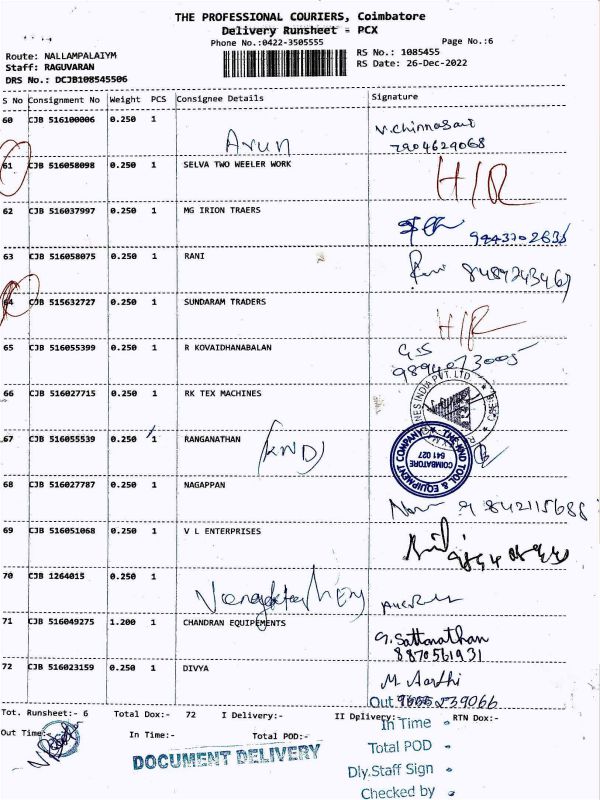 THE PROFESSIONAL COURIERS, Coimbatore
Delivery Runsheet = PCX
Phone No.:0422-3505555
Page No.:6
Route: NALLAMPALAIYM
Staff: RAGUVARAN
DRS No.: DCJB108545506
RS No.: 1085455
RS Date: 26-Dec-2022
S No Consignment No Weight PCS Consignee Details Signature
60 CJB 516100006 0.250 1 Arun
V.Chinnasami
7904629068
61 CJB 516058098 0.250 1 SELVA TWO WEELER WORK H/R
62 CJB 516037997 0.250 1 MG IRION TRAERS
63 CJB 516058075 0.250 1 RANI
8489743467
64 CJB 515632727 0.250 1 SUNDARAM TRADERS H/R
65 CJB 516055399 0.250 1 R KOVAIDHANABALAN
9894073005
66 CJB 516027715 0.250 1 RK TEX MACHINES
INDIA PVT. LTD
67 CJB 516055539 0.250 1 RANGANATHAN (KND)
THE KND TOOL & EQUIPMENT COMPANY
COIMBATORE
641 027
68 CJB 516027787 0.250 1 NAGAPPAN
9842115688
69 CJB 516051068 0.250 1 V L ENTERPRISES
70 CJB 1264015 0.250 1
71 CJB 516049275 1.200 1 CHANDRAN EQUIPEMENTS
G. Sattanathan
8870561931
72 CJB 516023159 0.250 1 DIVYA
M. Aarthi
Out
39066
Tot. Runsheet:- 6 Total Dox:- 72 I Delivery:- II Delivery:- RTN Dox:-
Out Time:- In Time:- Total POD:-
DOCUMENT DELIVERY
In Time
Total POD
Dly.Staff Sign
Checked by